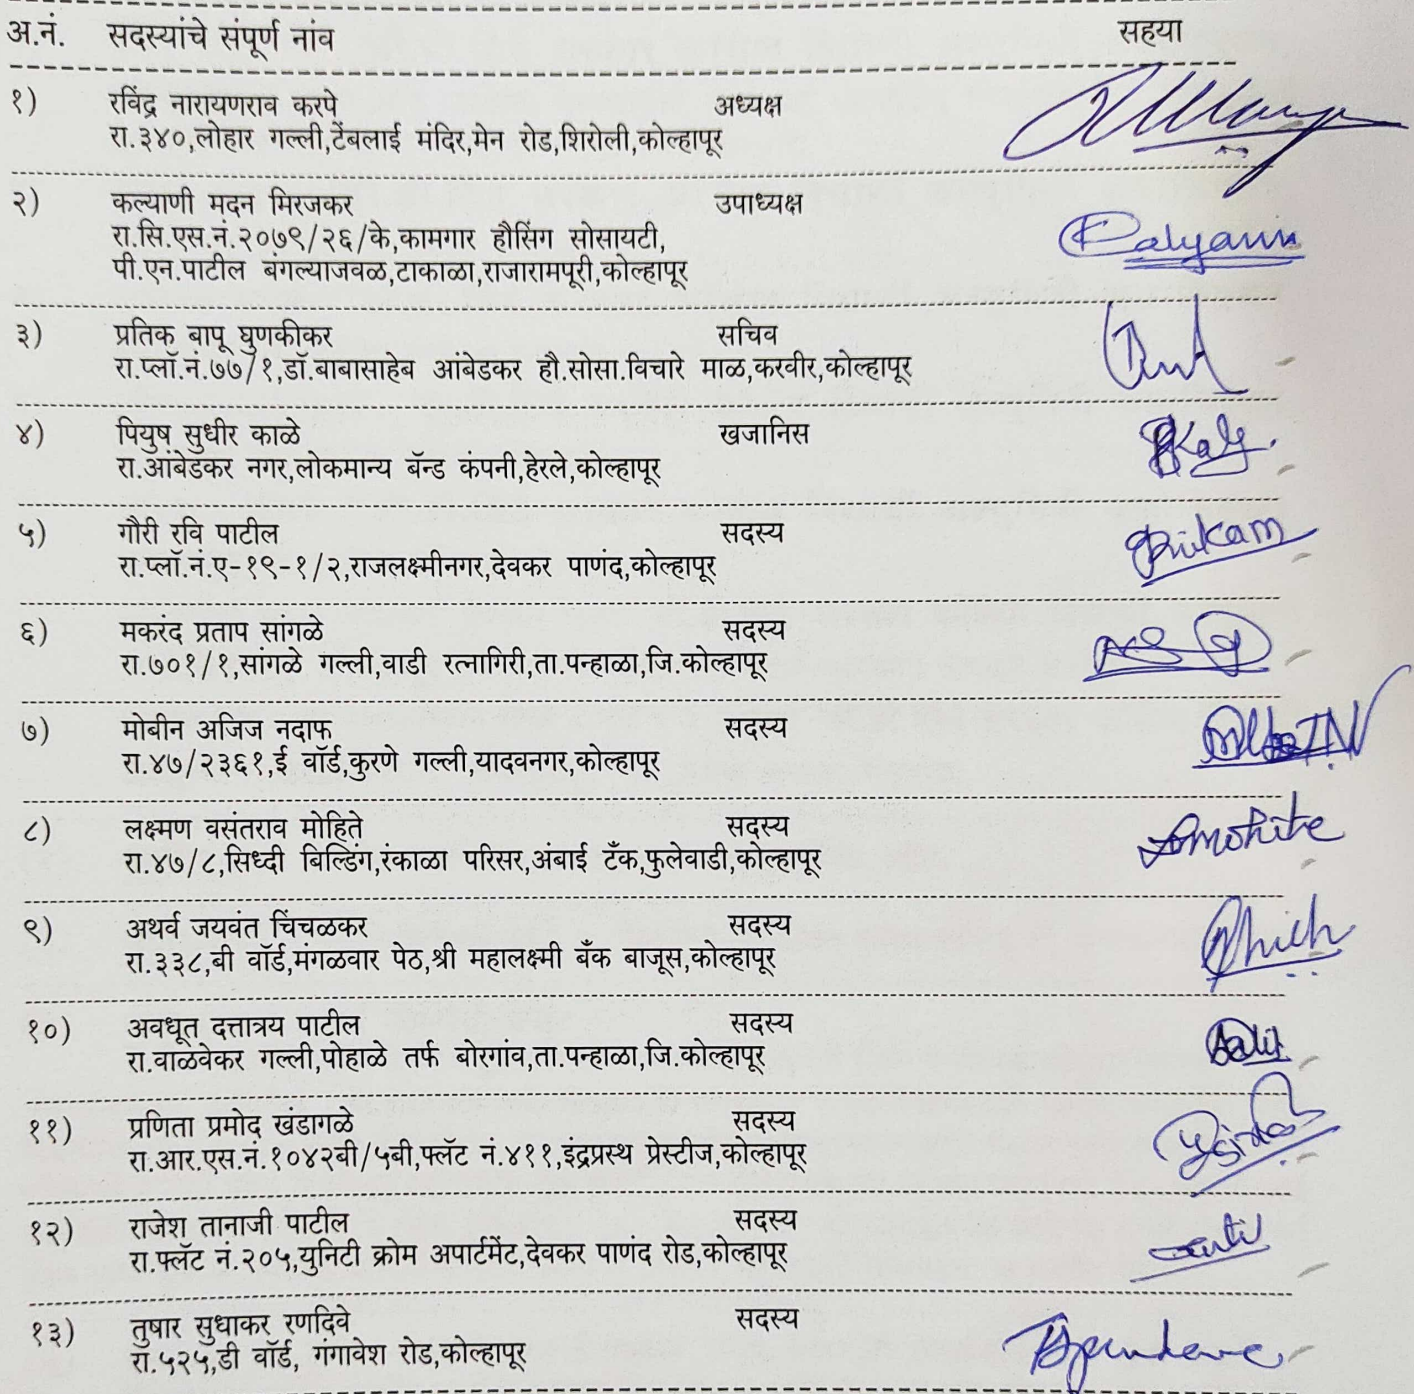 अ.नं. सदस्यांचे संपूर्ण नांव सहया
१) रविंद्र नारायणराव करपे अध्यक्ष
रा.३४०,लोहार गल्ली,टेंबलाई मंदिर,मेन रोड,शिरोली,कोल्हापूर
२) कल्याणी मदन मिरजकर उपाध्यक्ष
रा.सि.एस.नं.२०७९/२६/के,कामगार हौसिंग सोसायटी,
पी.एन.पाटील बंगल्याजवळ,टाकाळा,राजारामपूरी,कोल्हापूर
Kalyani
३) प्रतिक बापू घुणकीकर सचिव
रा.प्लॉ.नं.७७/१,डॉ.बाबासाहेब आंबेडकर हौ.सोसा.विचारे माळ,करवीर,कोल्हापूर
४) पियुष सुधीर काळे खजानिस
रा.आंबेडकर नगर,लोकमान्य बॅन्ड कंपनी,हेरले,कोल्हापूर
५) गौरी रवि पाटील सदस्य
रा.प्लॉ.नं.ए-१९-१/२,राजलक्ष्मीनगर,देवकर पाणंद,कोल्हापूर
६) मकरंद प्रताप सांगळे सदस्य
रा.७०१/१,सांगळे गल्ली,वाडी रत्नागिरी,ता.पन्हाळा,जि.कोल्हापूर
७) मोबीन अजिज नदाफ सदस्य
रा.४७/२३६१,ई वॉर्ड,कुरणे गल्ली,यादवनगर,कोल्हापूर
८) लक्ष्मण वसंतराव मोहिते सदस्य
रा.४७/८,सिध्दी बिल्डिंग,रंकाळा परिसर,अंबाई टँक,फुलेवाडी,कोल्हापूर
Lmohite
९) अथर्व जयवंत चिंचळकर सदस्य
रा.३३८,बी वॉर्ड,मंगळवार पेठ,श्री महालक्ष्मी बँक बाजूस,कोल्हापूर
१०) अवधूत दत्तात्रय पाटील सदस्य
रा.वाळवेकर गल्ली,पोहाळे तर्फ बोरगांव,ता.पन्हाळा,जि.कोल्हापूर
११) प्रणिता प्रमोद खंडागळे सदस्य
रा.आर.एस.नं.१०४२बी/५बी,फ्लॅट नं.४११,इंद्रप्रस्थ प्रेस्टीज,कोल्हापूर
१२) राजेश तानाजी पाटील सदस्य
रा.फ्लॅट नं.२०५,युनिटी क्रोम अपार्टमेंट,देवकर पाणंद रोड,कोल्हापूर
१३) तुषार सुधाकर रणदिवे सदस्य
रा.५२५,डी वॉर्ड, गंगावेश रोड,कोल्हापूर